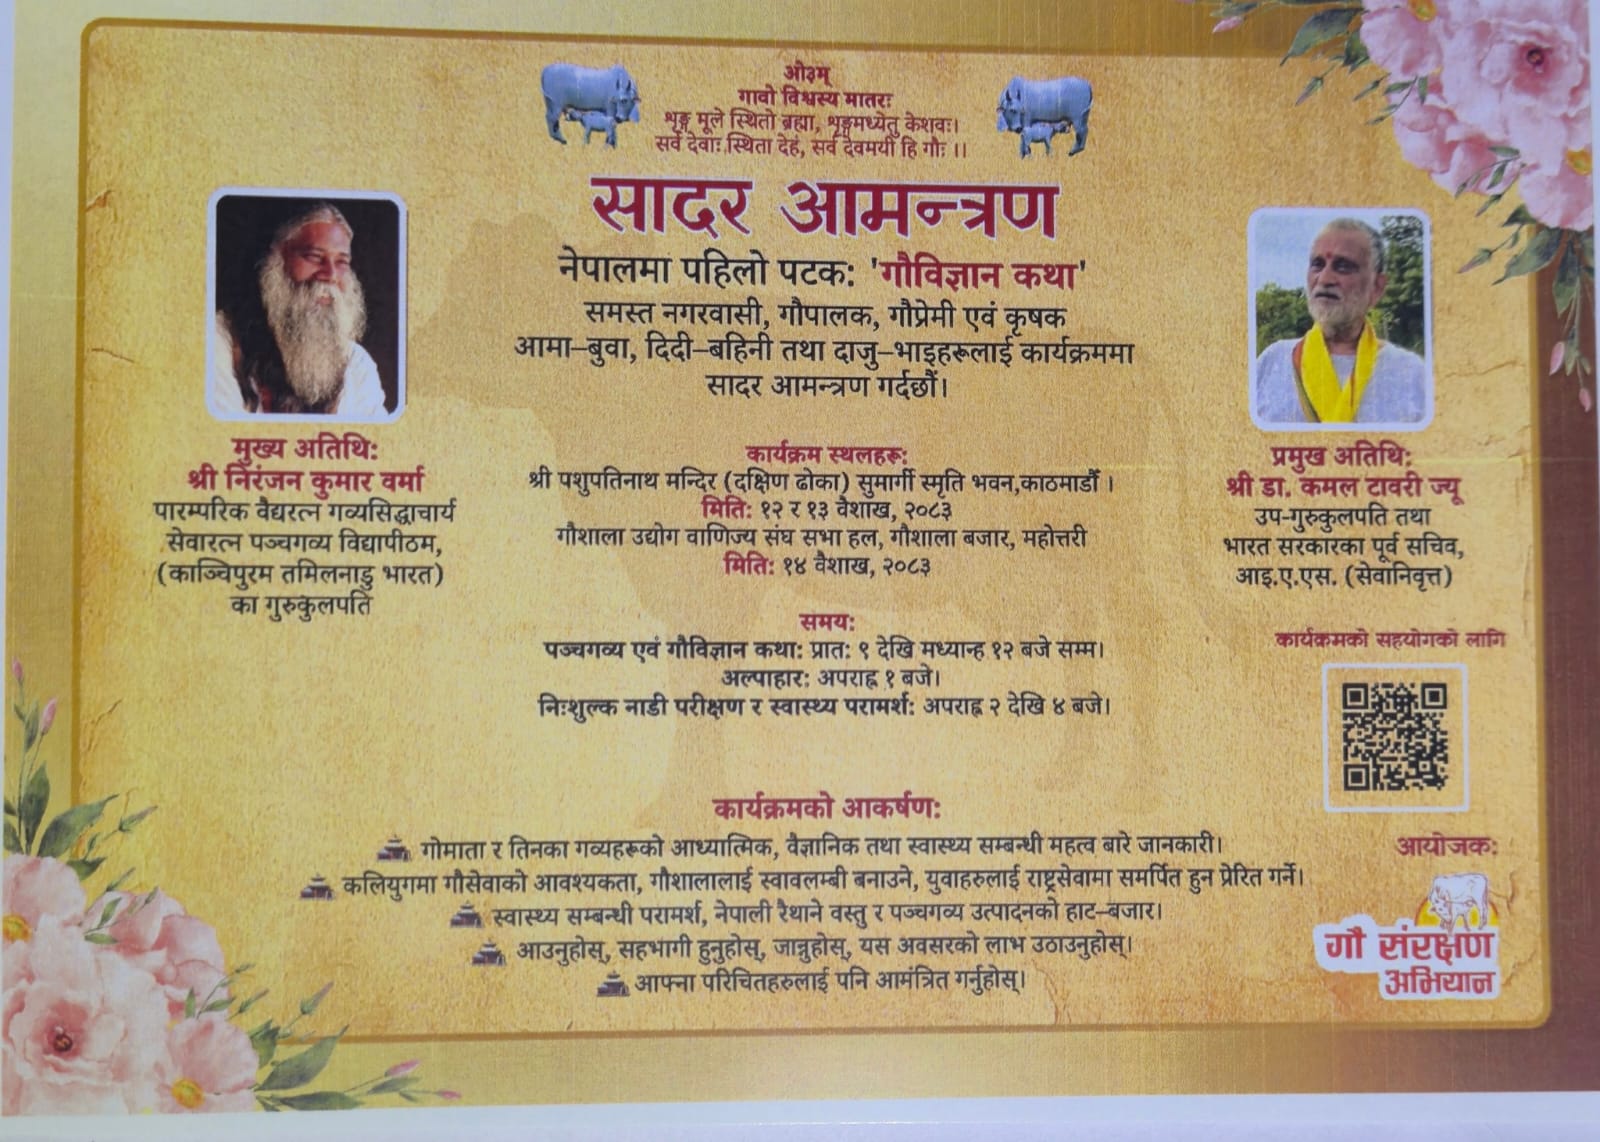 ओ३म्
गावो विश्वस्य मातरः
शृङ्ग मूले स्थितो ब्रह्मा, शृङ्गमध्येतु केशवः।
सर्वे देवाः स्थिता देहे, सर्व देवमयी हि गौः ।।
सादर आमन्त्रण
नेपालमा पहिलो पटक: 'गौविज्ञान कथा'
समस्त नगरवासी, गौपालक, गौप्रेमी एवं कृषक
आमा–बुवा, दिदी–बहिनी तथा दाजु–भाइहरूलाई कार्यक्रममा
सादर आमन्त्रण गर्दछौं।
मुख्य अतिथि:
श्री निरंजन कुमार वर्मा
पारम्परिक वैद्यरत्न गव्यसिद्धाचार्य
सेवारत्न पञ्चगव्य विद्यापीठम,
(काञ्चिपुरम तमिलनाडु भारत)
का गुरुकुलपति
कार्यक्रम स्थलहरू:
श्री पशुपतिनाथ मन्दिर (दक्षिण ढोका) सुमार्गी स्मृति भवन,काठमाडौं ।
मिति: १२ र १३ वैशाख, २०८३
गौशाला उद्योग वाणिज्य संघ सभा हल, गौशाला बजार, महोत्तरी
मिति: १४ वैशाख, २०८३
समय:
पञ्चगव्य एवं गौविज्ञान कथा: प्रात: ९ देखि मध्यान्ह १२ बजे सम्म।
अल्पाहार: अपराह्न १ बजे।
निःशुल्क नाडी परीक्षण र स्वास्थ्य परामर्श: अपराह्न २ देखि ४ बजे।
प्रमुख अतिथि:
श्री डा. कमल टावरी ज्यू
उप-गुरुकुलपति तथा
भारत सरकारका पूर्व सचिव,
आइ.ए.एस. (सेवानिवृत्त)
कार्यक्रमको सहयोगको लागि
कार्यक्रमको आकर्षण:
गोमाता र तिनका गव्यहरूको आध्यात्मिक, वैज्ञानिक तथा स्वास्थ्य सम्बन्धी महत्व बारे जानकारी।
कलियुगमा गौसेवाको आवश्यकता, गौशालालाई स्वावलम्बी बनाउने, युवाहरुलाई राष्ट्रसेवामा समर्पित हुन प्रेरित गर्ने।
स्वास्थ्य सम्बन्धी परामर्श, नेपाली रैथाने वस्तु र पञ्चगव्य उत्पादनको हाट–बजार।
आउनुहोस्, सहभागी हुनुहोस्, जान्नुहोस्, यस अवसरको लाभ उठाउनुहोस्।
आफ्ना परिचितहरुलाई पनि आमंत्रित गर्नुहोस्।
आयोजक:
गौ संरक्षण
अभियान